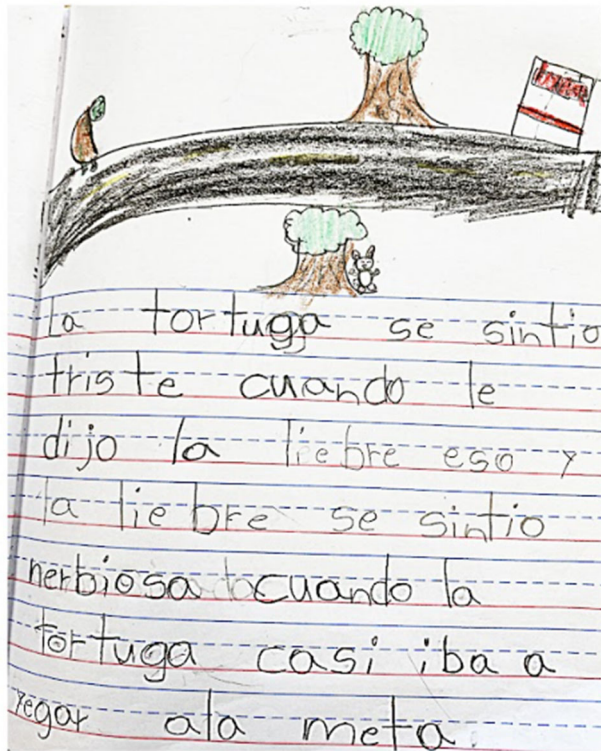 la tortuga se sintio
triste cuando le
dijo la liebre eso y
la liebre se sintio
nerbiosa cuando la
tortuga casi iba a
yegar ala meta.